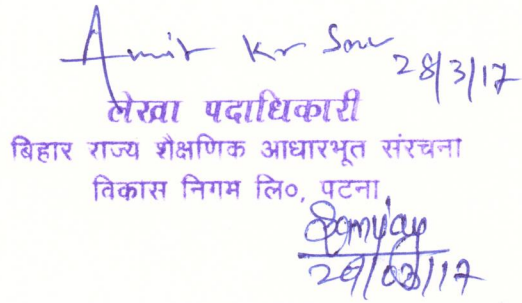 Amit Kr
28/3/17
लेखा पदाधिकारी
बिहार राज्य शैक्षणिक आधारभूत संरचना
विकास निगम लि०, पटना
28/03/17